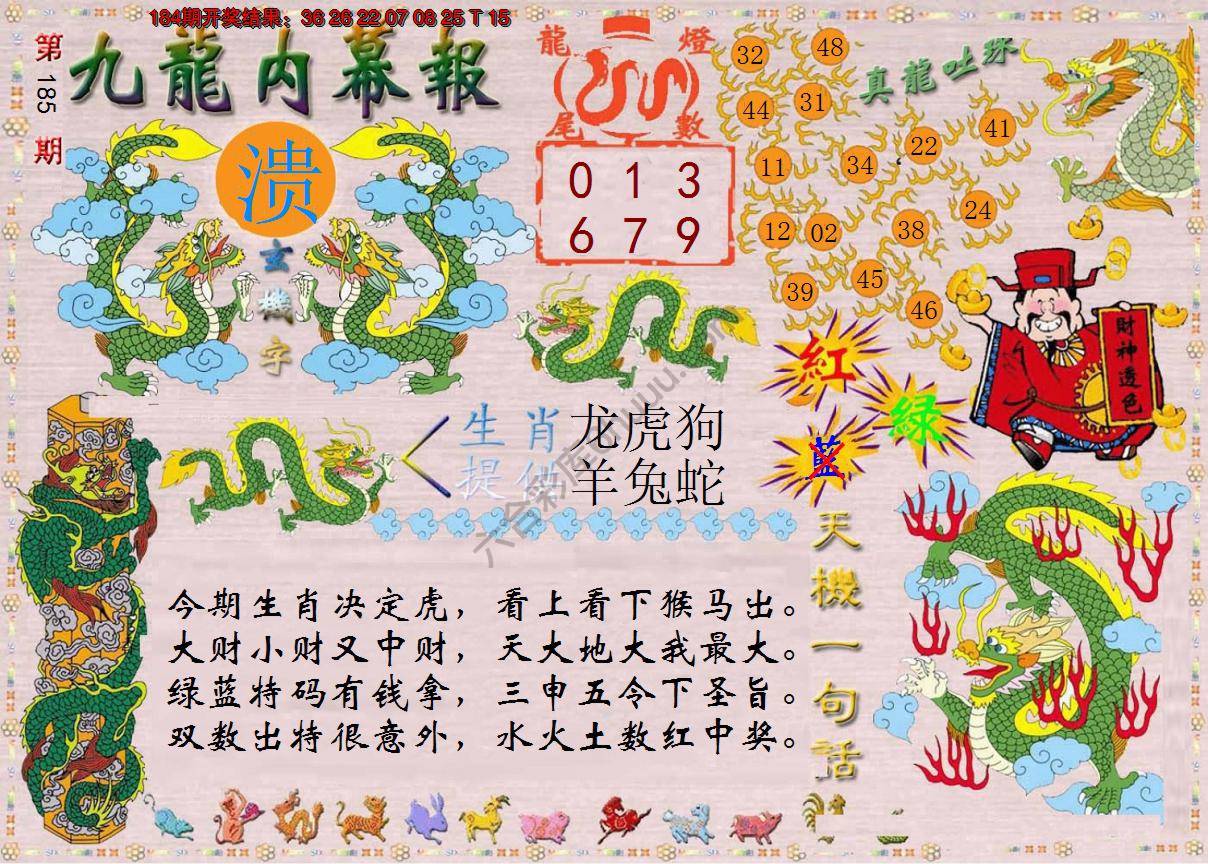 184期开奖结果：36 26 22 07 08 25 T 15
第185期
九龍內幕報
溃
玄機字
龍燈
尾數
0 1 3
6 7 9
真龍吐珠
32 48
44 31
11 34 22 41
12 02 38 24
39 45 46
財神透色
紅
綠
藍
生肖 龙虎狗
提供 羊兔蛇
天機一句話
今期生肖决定虎，看上看下猴马出。
大财小财又中财，天大地大我最大。
绿蓝特码有钱拿，三申五令下圣旨。
双数出特很意外，水火土数红中奖。